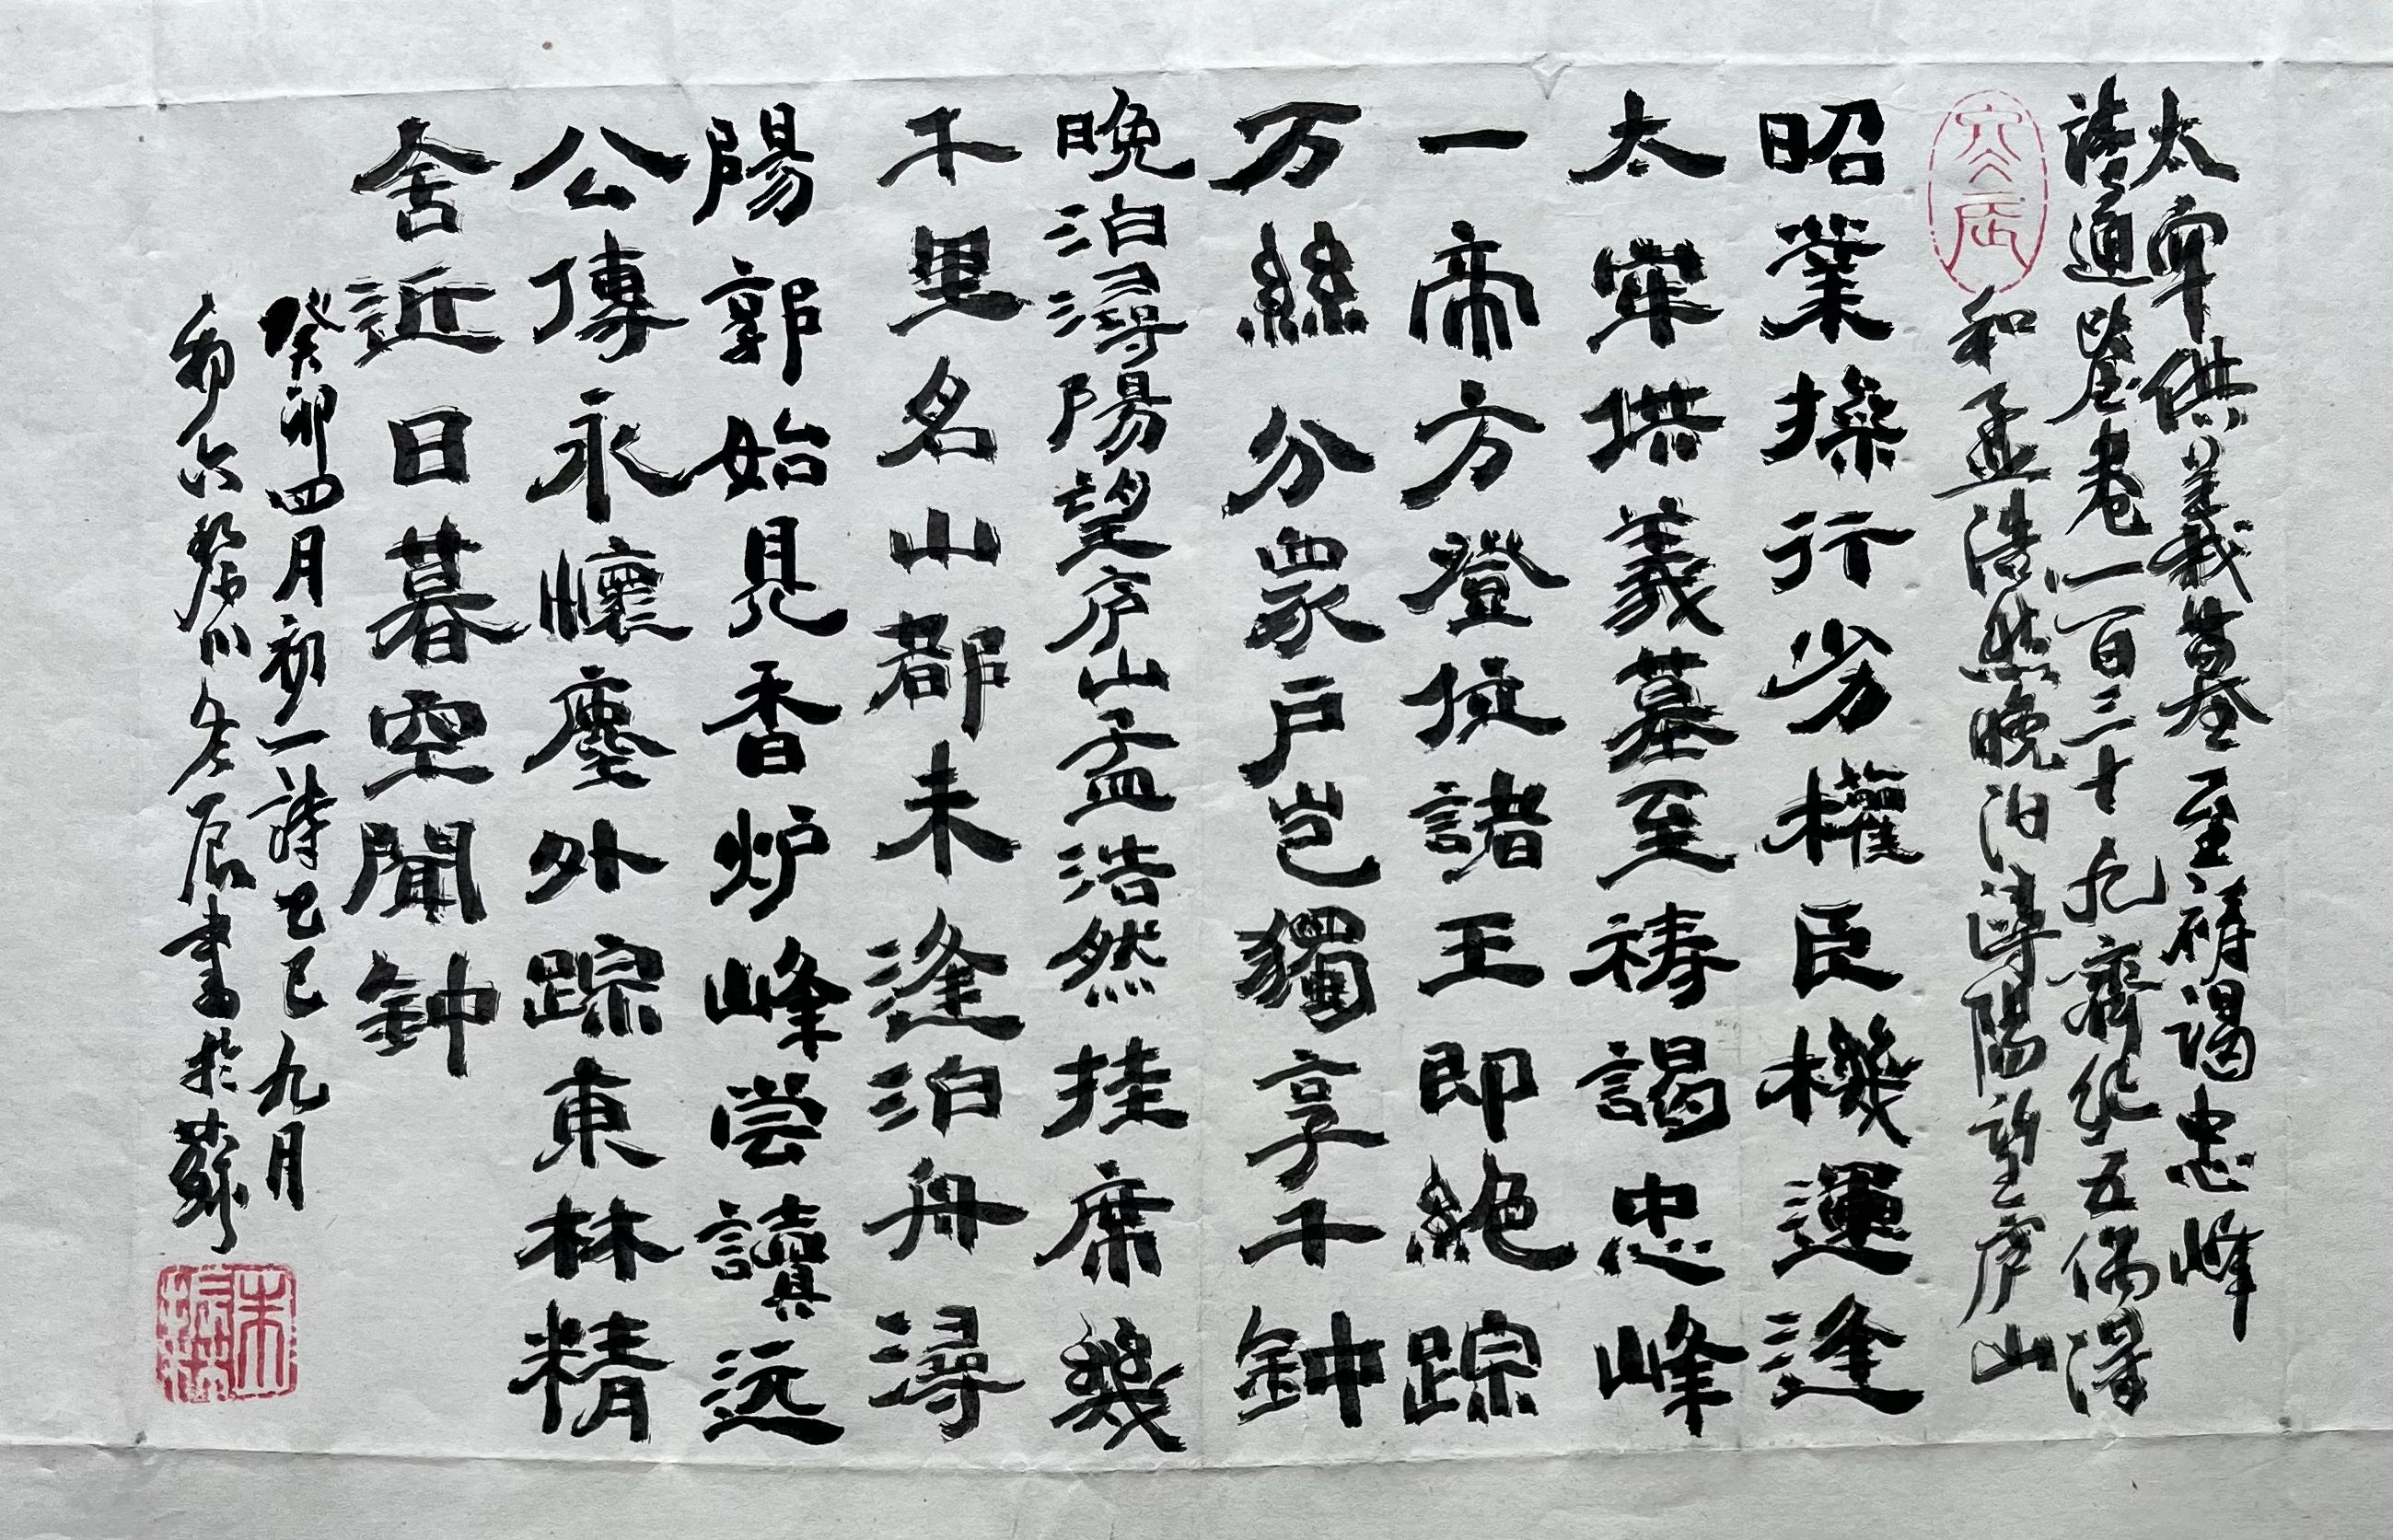 太宰供義墓至禱謁忠峰
讀通鑒卷一百三十九齊紀五偶得
和孟浩然晚泊潯陽望庐山
昭業操行劣權臣機運逢
太宰供義墓至禱謁忠峰
一帝方登位諸王即絶踪
万絲分眾戶岂獨享千鐘
晚泊潯陽望庐山孟浩然挂席幾
千里名山都未逢泊舟潯
陽郭始見香炉峰尝讀远
公傳永懷塵外踪東林精
舍近日暮空聞鐘
癸卯四月初一詩乙巳九月
初六黎川冬辰書於蘇